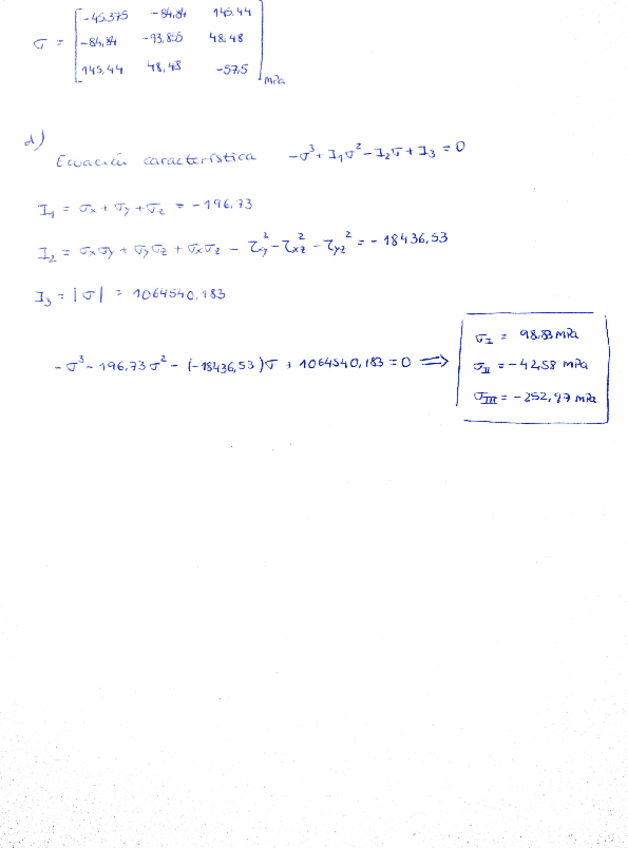 σ = [ -45.375 -84,84 145.44
-84,84 -93,855 48.48
145,44 48,48 -57,5 ] MPa
d)
Ecuación característica -σ³ + I₁σ² - I₂σ + I₃ = 0
I₁ = σx + σy + σz = -196,73
I₂ = σxσy + σyσz + σxσz - τxy² - τxz² - τyz² = -18436,53
I₃ = |σ| = 1064540,183
-σ³ - 196,73σ² - (-18436,53)σ + 1064540,183 = 0 ⟹
σI = 98.83 MPa
σII = -42,58 MPa
σIII = -252,97 MPa